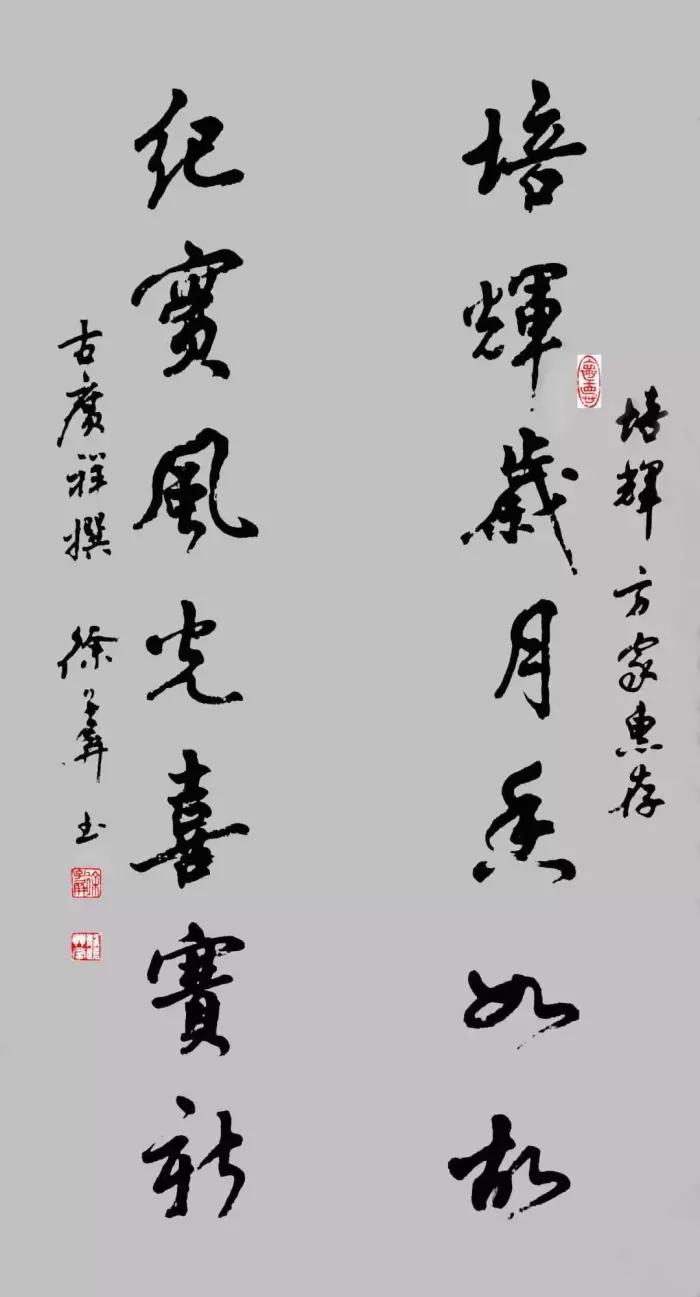 培輝方家惠存
培輝歲月悉如故
紀實風光喜賽新
古廣祥撰 徐 书